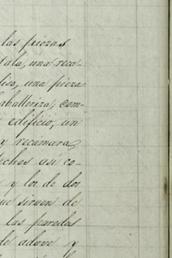 las piezas
tala, una reco-
liso, una pieza
caballeriza, com-
edificio, un
y recamara,
techos asi co-
y los de dos
que sirven de
las paredes
de adove y